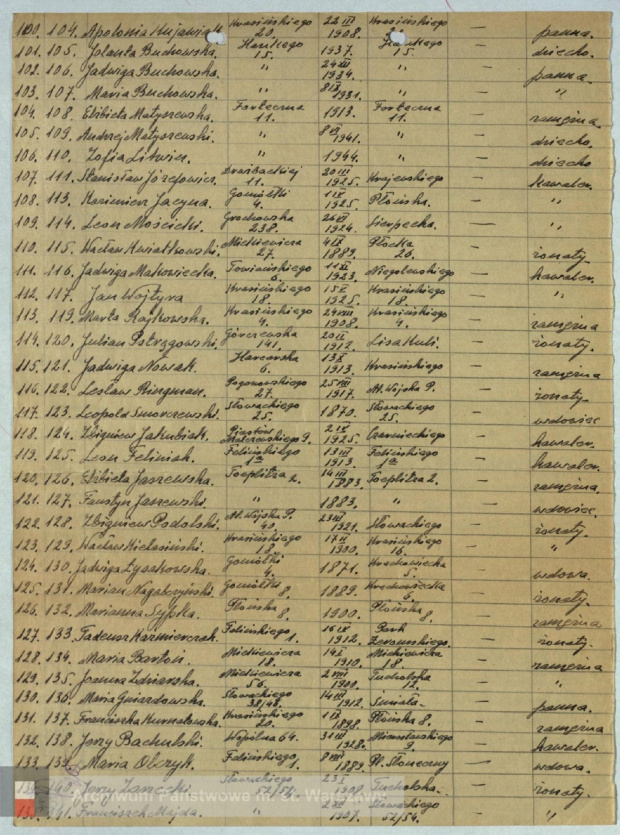 100. 104. Apolonia Kujawiak Krasińskiego 20. 22 III 1908. Krasińskiego — panna.
101. 105. Jolanta Buchowska. Haukego 15. 1937. Haukego 15. — dziecko.
102. 106. Jadwiga Buchowska. " 24 VII 1934. " — panna.
103. 107. Maria Buchowska. " 1931. " — "
104. 108. Elżbieta Matyszewska. Forteczna 11. 1913. Forteczna 11. — zamężna.
105. 109. Andrzej Matyszewski. " 1941. " — dziecko
106. 110. Zofia Litwin. " 1944. " — dziecko
107. 111. Stanisław Józefowicz. 11. 20 III 1925. Krajewskiego — kawaler.
108. 113. Kazimierz Jacyna. Gomółki 4. 1925. Płońska. — "
109. 114. Leon Mościcki. Grochowska 238. 26 VI 1924. Sierpecka. — "
110. 115. Wacław Kwiatkowski. Mickiewicza 27. 4 IX 1889. Płocka 26. — żonaty.
111. 116. Jadwiga Makowiecka. Towiańskiego 11 XI 1923. Niegolewskiego — kawaler.
112. 117. Jan Wojtyra Krasińskiego 18. 15 V 1925. Krasińskiego 18. — "
113. 119. Marta Rajkowska. Krasińskiego 4. 1908. Krasińskiego 4. — zamężna
114. 120. Julian Postrzygowski. Górczewska 141. 20 II 1912. Lisa Kuli. — żonaty.
115. 121. Jadwiga Nowak. Harcerska 6. 13 X 1913. Krasińskiego — zamężna
116. 122. Lesław Ringman. Pogonowskiego 27. 25 VIII 1917. Al. Wojska P. — żonaty.
117. 123. Leopold Słowackiego 25. 1870. Słowackiego 25. — wdowiec
118. 124. Zbigniew Jakubiak. Piastów 9. 2 IX 1925. Czarnieckiego — kawaler.
119. 125. Leon Feliniak. Felińskiego 1a 13 III 1913. Felińskiego 1a — kawaler.
120. 126. Elżbieta Jaszewska. Toeplitza 2. 14 III 1883. Toeplitza 2. — zamężna.
121. 127. Faustyn Jaszewski. " 1883. " — wdowiec.
122. 128. Zbigniew Podolski. Al. Wojska P. 40. 23 III 1921. Słowackiego — żonaty.
123. 129. Wacław Krasińskiego 18. 17 II 1900. Krasińskiego 16. — "
124. 130. Jadwiga Łysakowska. Gomółki 4. 1871. Krechowiecka 5. — wdowa.
125. 131. Marian Nagabczyński. Gomółki 8. 1889. Krechowiecka 6. — żonaty.
126. 132. Marianna Sypka. Płońska 8. 1900. Płońska 8. — zamężna
127. 133. Tadeusz Kaźmierczak. Felińskiego 1. 16 IX 1912. Park Żeromskiego. — żonaty.
128. 134. Maria Bartoń. Mickiewicza 18. 14 I 1910. Mickiewicza 18. — zamężna
129. 135. Joanna Zdziarska. Mickiewicza 56. 2 VIII 1900. Tucholska 12. — "
130. 136. Maria Gniazdowska. Słowackiego 38/48. 14 III 1912. Suwals. — panna.
131. 137. Franciszka Kurwałowska. Krasińskiego 20. 1 IX 1898. Płońska 8. — zamężna
132. 138. Jerzy Bachulski. Wspólna 64. 31 III 1928. 9. — kawaler.
133. Maria Olczyk. Felińskiego 1. 8 VIII 1889. Pl. Słoneczny — wdowa.
140. Jerzy Zanecki. Słowackiego 52/54. 23 I 1908. Tucholska. — żonaty.
141. Franciszek Majda. " 1907. Słowackiego 52/54. — "
Archiwum Państwowe m. st. Warszawy